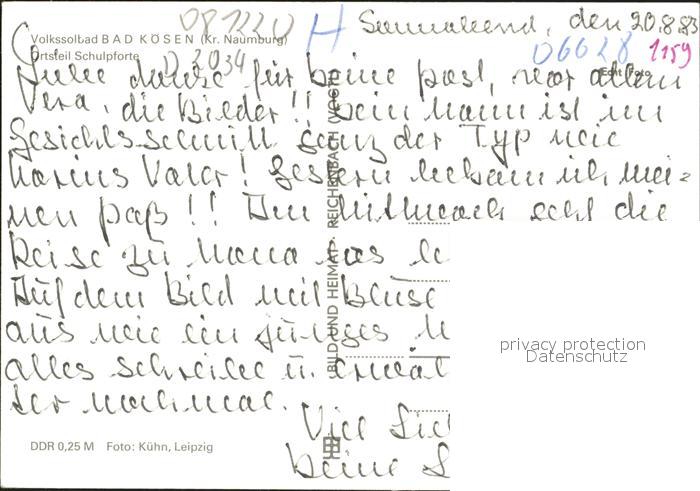 081220
H
Sonnabend, den 20.8.83
Volkssolbad BAD KÖSEN (Kr. Naumburg)
Ortsteil Schulpforte
D 2034
06628
1159
Echt Foto
danke für Deine Post, vor allem
Vera, die Bilder!! Dein Mann ist im
Gesichtsschnitt ganz der Typ wie
Marius Vater! Gestern bekam ich mei=
nen Paß!! Am Mittwoch geht die
Reise zu Mama los
Auf dem Bild mit Bluse
aus wie ein junges M
alles schreibe u.
nochmal.
Viel Lie
Deine
BILD UND HEIMAT REICHENBACH (VOGTL)
DDR 0,25 M Foto: Kühn, Leipzig
privacy protection
Datenschutz